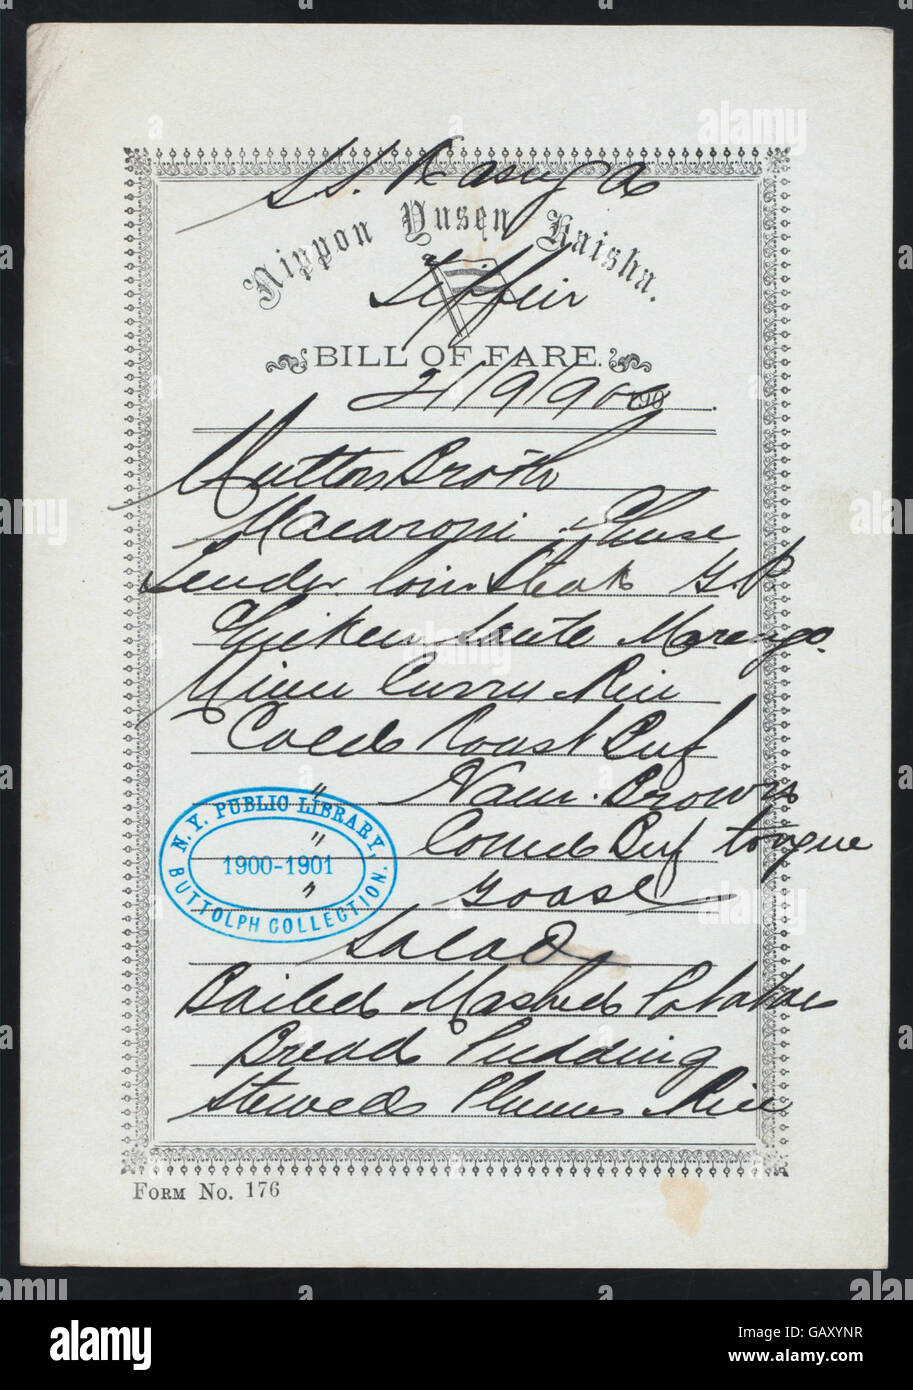 SS. Kasuga
Nippon Yusen Kaisha.
Tiffin
BILL OF FARE.
21/9/1900 190
Mutton Broth
Macaroni & Cheese
Tender loin Steak G.P
Chicken Saute Marengo.
Curry Rice
Cold Roast Beef
" Ham. Brown
" Corned Beef tongue
" Goose
Salad
Boiled Mashed Potatoes
Bread Pudding
Stewed Plums Rice
N.Y. PUBLIC LIBRARY,
1900-1901
BUTTOLPH COLLECTION.
FORM NO. 176
alamy
alamy stock photo
GAXYNR
www.alamy.com